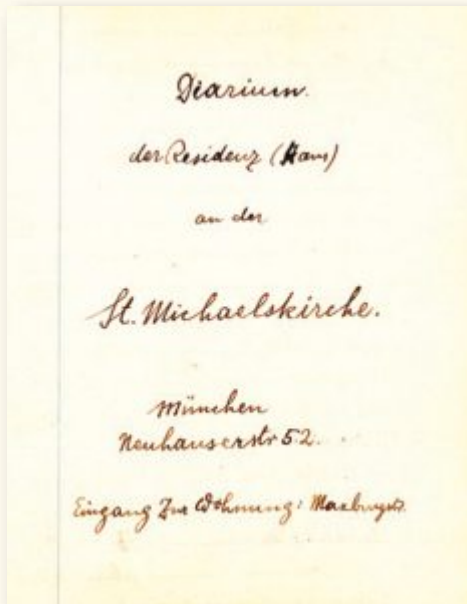 Diarium.
der Residenz (Haus)
an der
St. Michaelskirche.
München
Neuhauserstr 52.
Eingang zur Wohnung: Maxburgstr.